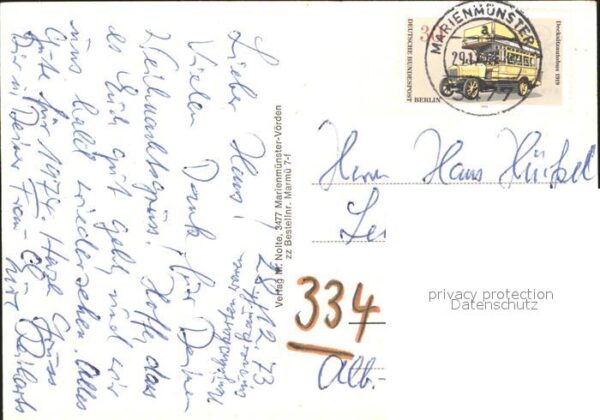 28/12.73
Lieber Hans!
Vielen Dank für Deinen
Weihnachtsgruss! Hoffe, das
es Euch gut geht, und wir
uns bald wiedersehen. Alles
Gute für 1974. Herzl. Gruss
Dir u. Deiner Frau
Verlag M. Nolte, 3477 Marienmünster-Vörden
zz Bestellnr. Marmü 7-f
DEUTSCHE BUNDESPOST
BERLIN
Decksitzautobus 1919
MARIENMÜNSTER
a
3477
Herrn Hans
334
Alb.-
privacy protection
Datenschutz